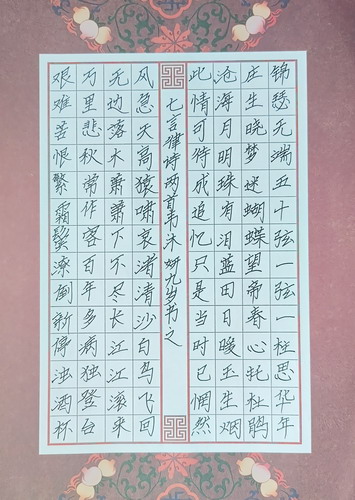 锦瑟无端五十弦一弦一柱思华年
庄生晓梦迷蝴蝶望帝春心托杜鹃
沧海月明珠有泪蓝田日暖玉生烟
此情可待成追忆只是当时已惘然
七言律诗两首韦沐妍九岁书之
风急天高猿啸哀渚清沙白鸟飞回
无边落木萧萧下不尽长江江滚来
万里悲秋常作客百年多病独登台
艰难苦恨繁霜鬓潦倒新停浊酒杯